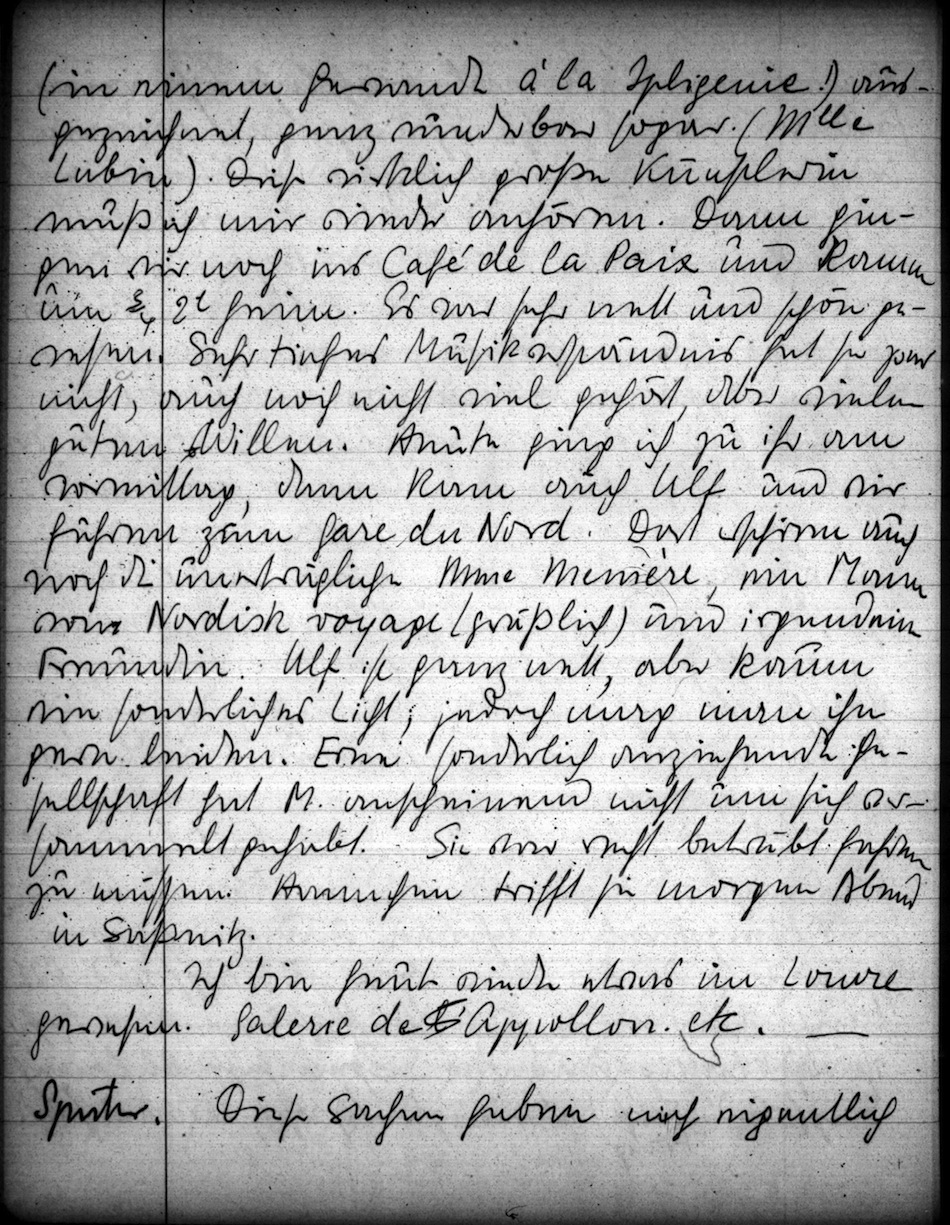 (in einem Gewande á la Iphigenie!) aus-
gezeichnet, ganz wunderbar sogar. (Mlle
Lubin). Diese wirklich große Künstlerin
muß ich mir wieder anhören. Dann gin-
gen wir noch ins Café de la Paix und kamen
um ¾ 2t heim. Es war sehr nett und schön ge-
wesen. Sehr tiefes Musikverständnis hat sie zwar
nicht, auch noch nicht viel gehört, aber vielen
guten Willen. Heute ging ich zu ihr am
vormittag, dann kam auch Ulf und wir
fuhren zum Gare du Nord. Dort erschienen auch
noch die unerträgliche Mme Menière, ein Mann
vom Nordisk voyage (gräßlich) und irgendeine
Freundin. Ulf ist ganz nett, aber kaum
ein sonderliches Licht; jedoch mag man ihn
gern leiden. Eine sonderlich anziehende Ge-
sellschaft hat M. anscheinend nicht um sich ver-
sammelt gehabt. Sie war recht betrübt fahren
zu müssen. Hannchen trifft sie morgen Abend
in Saßnitz.
Ich bin heut wieder etwas im Louvre
gewesen. Galerie de Appollon. etc. —
Später. Diese Sachen haben mich eigentlich